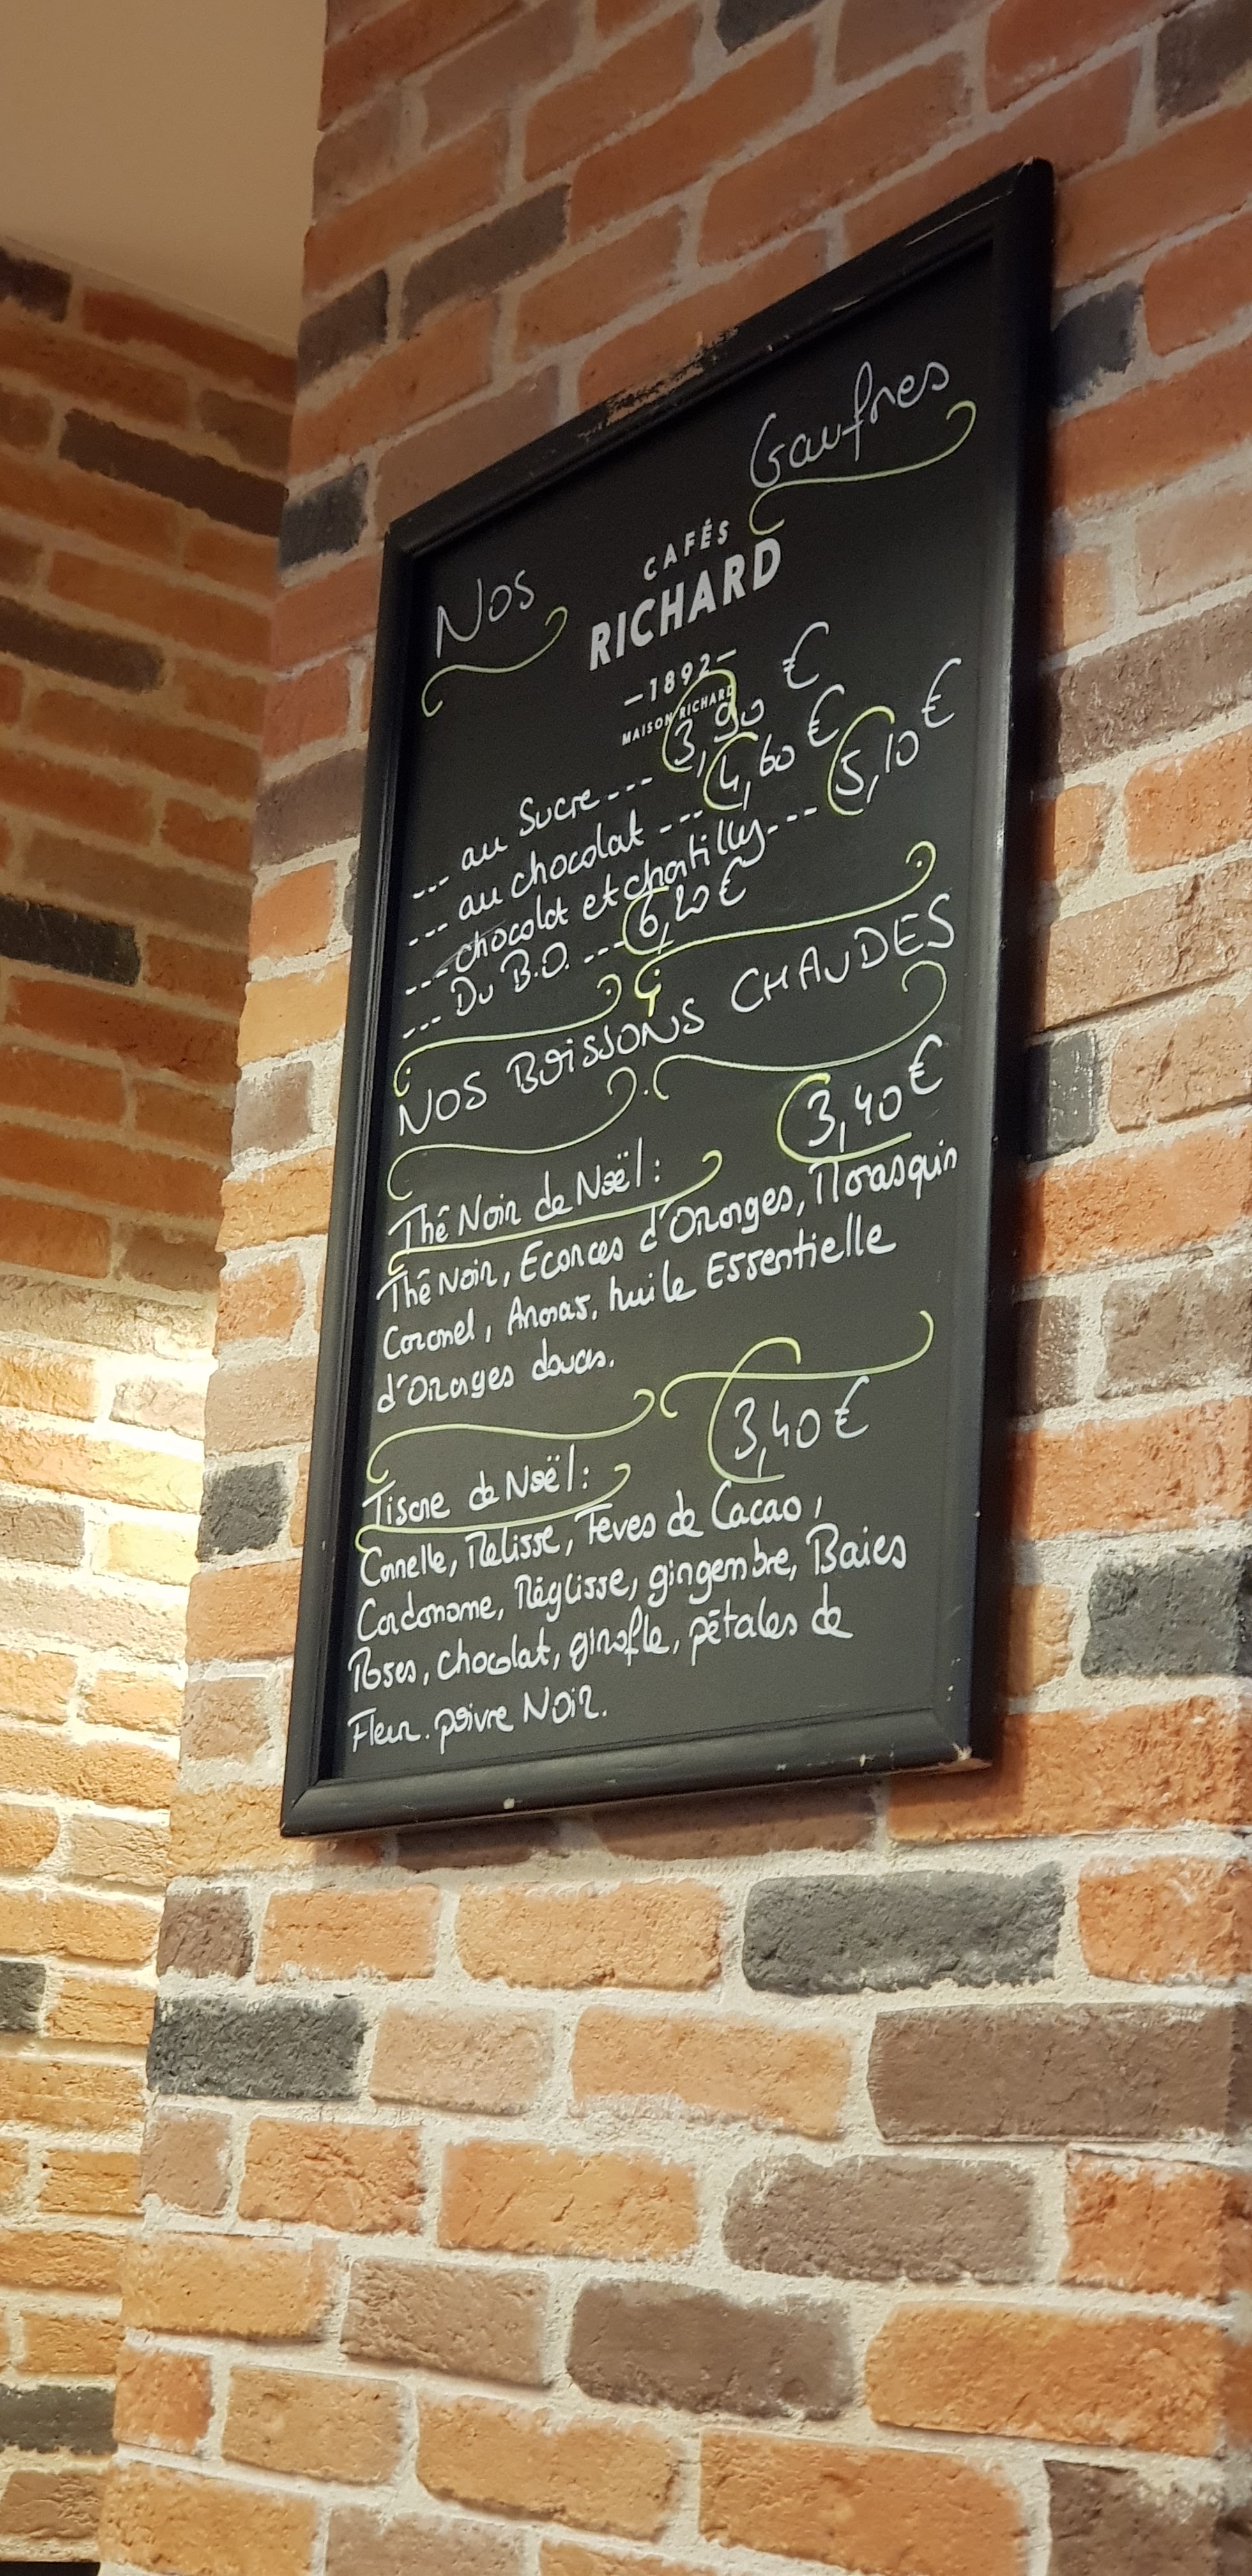 Nos Gaufres
CAFÉS
RICHARD
—1892—
MAISON RICHARD
--- au Sucre --- 3,90 €
--- au chocolat --- 4,60 €
--- chocolat et chantilly --- 5,10 €
--- Du B.O. --- 6,20 €
NOS BOISSONS CHAUDES
Thé Noir de Noël : 3,40 €
Thé Noir, Ecorces d'Oranges, Marasquin
Caramel, Ananas, huile Essentielle
d'Oranges douces.
Tisane de Noël : 3,40 €
Cannelle, Mélisse, Feves de Cacao,
Cardamome, Réglisse, gingembre, Baies
Roses, chocolat, girofle, pétales de
Fleur. poivre Noir.